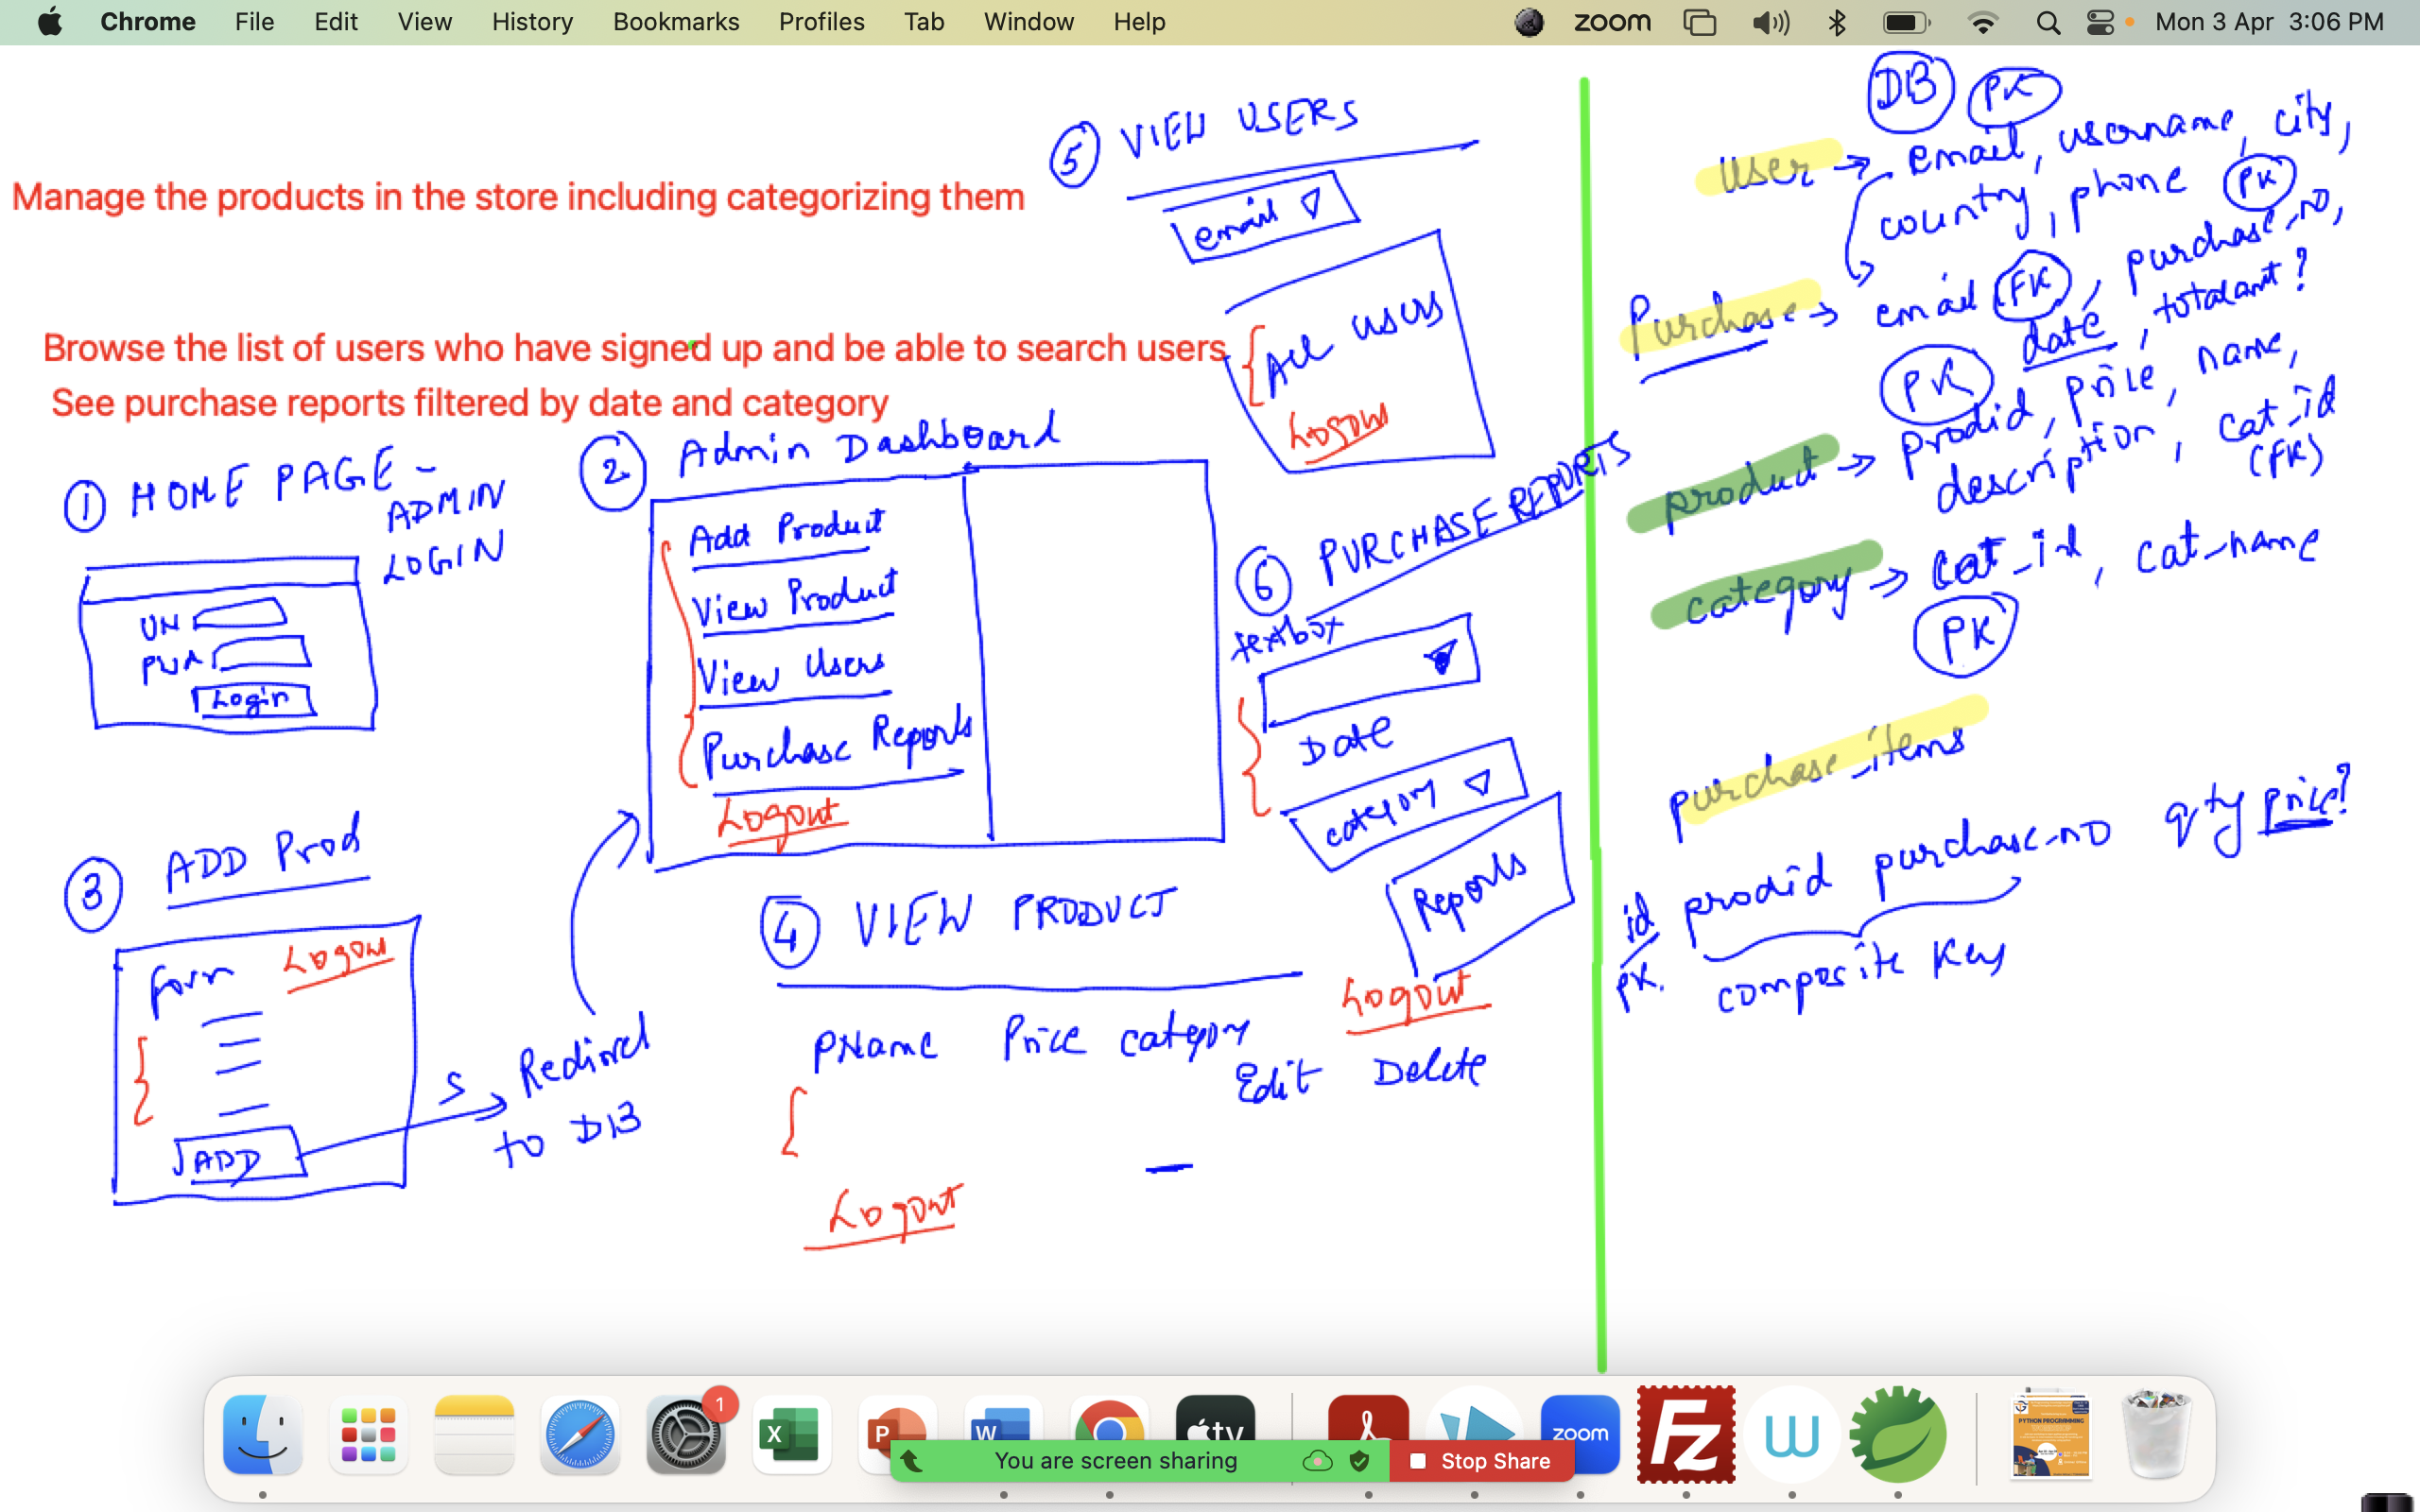 Chrome File Edit View History Bookmarks Profiles Tab Window Help zoom Mon 3 Apr 3:06 PM
Manage the products in the store including categorizing them
Browse the list of users who have signed up and be able to search users
See purchase reports filtered by date and category
① HOME PAGE -
ADMIN
LOGIN
UN
PWD
Login
② Admin Dashboard
Add Product
View Product
View Users
Purchase Reports
Logout
③ ADD Prod
Form Logout
ADD
S → Redirect
to DB
④ VIEW PRODUCT
PName Price category
Edit Delete
Logout
⑤ VIEW USERS
email
All users
Logout
⑥ PURCHASE REPORTS
textbox
Date
category
Reports
Logout
DB PK
User → email, username, city,
country, phone PK
Purchase → email (FK), purchase_no,
date, totalamt?
PK
product → prodid, price, name,
description, cat_id
(FK)
category → cat_id, cat_name
PK
purchase_items
id prodid purchase_no qty price?
PK.
composite key
1
X
P
W
tv
zoom
Fz
W
PYTHON PROGRAMMING
You are screen sharing Stop Share